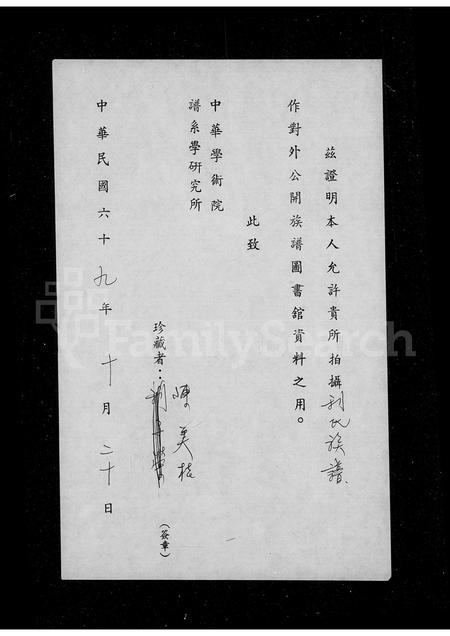 茲證明本人允許貴所拍攝利氏族譜
作對外公開族譜圖書舘資料之用。
此致
中華學術院
譜系學研究所
珍藏者：陳美桂
(簽章)
中華民國六十九年十月二十日
FamilySearch